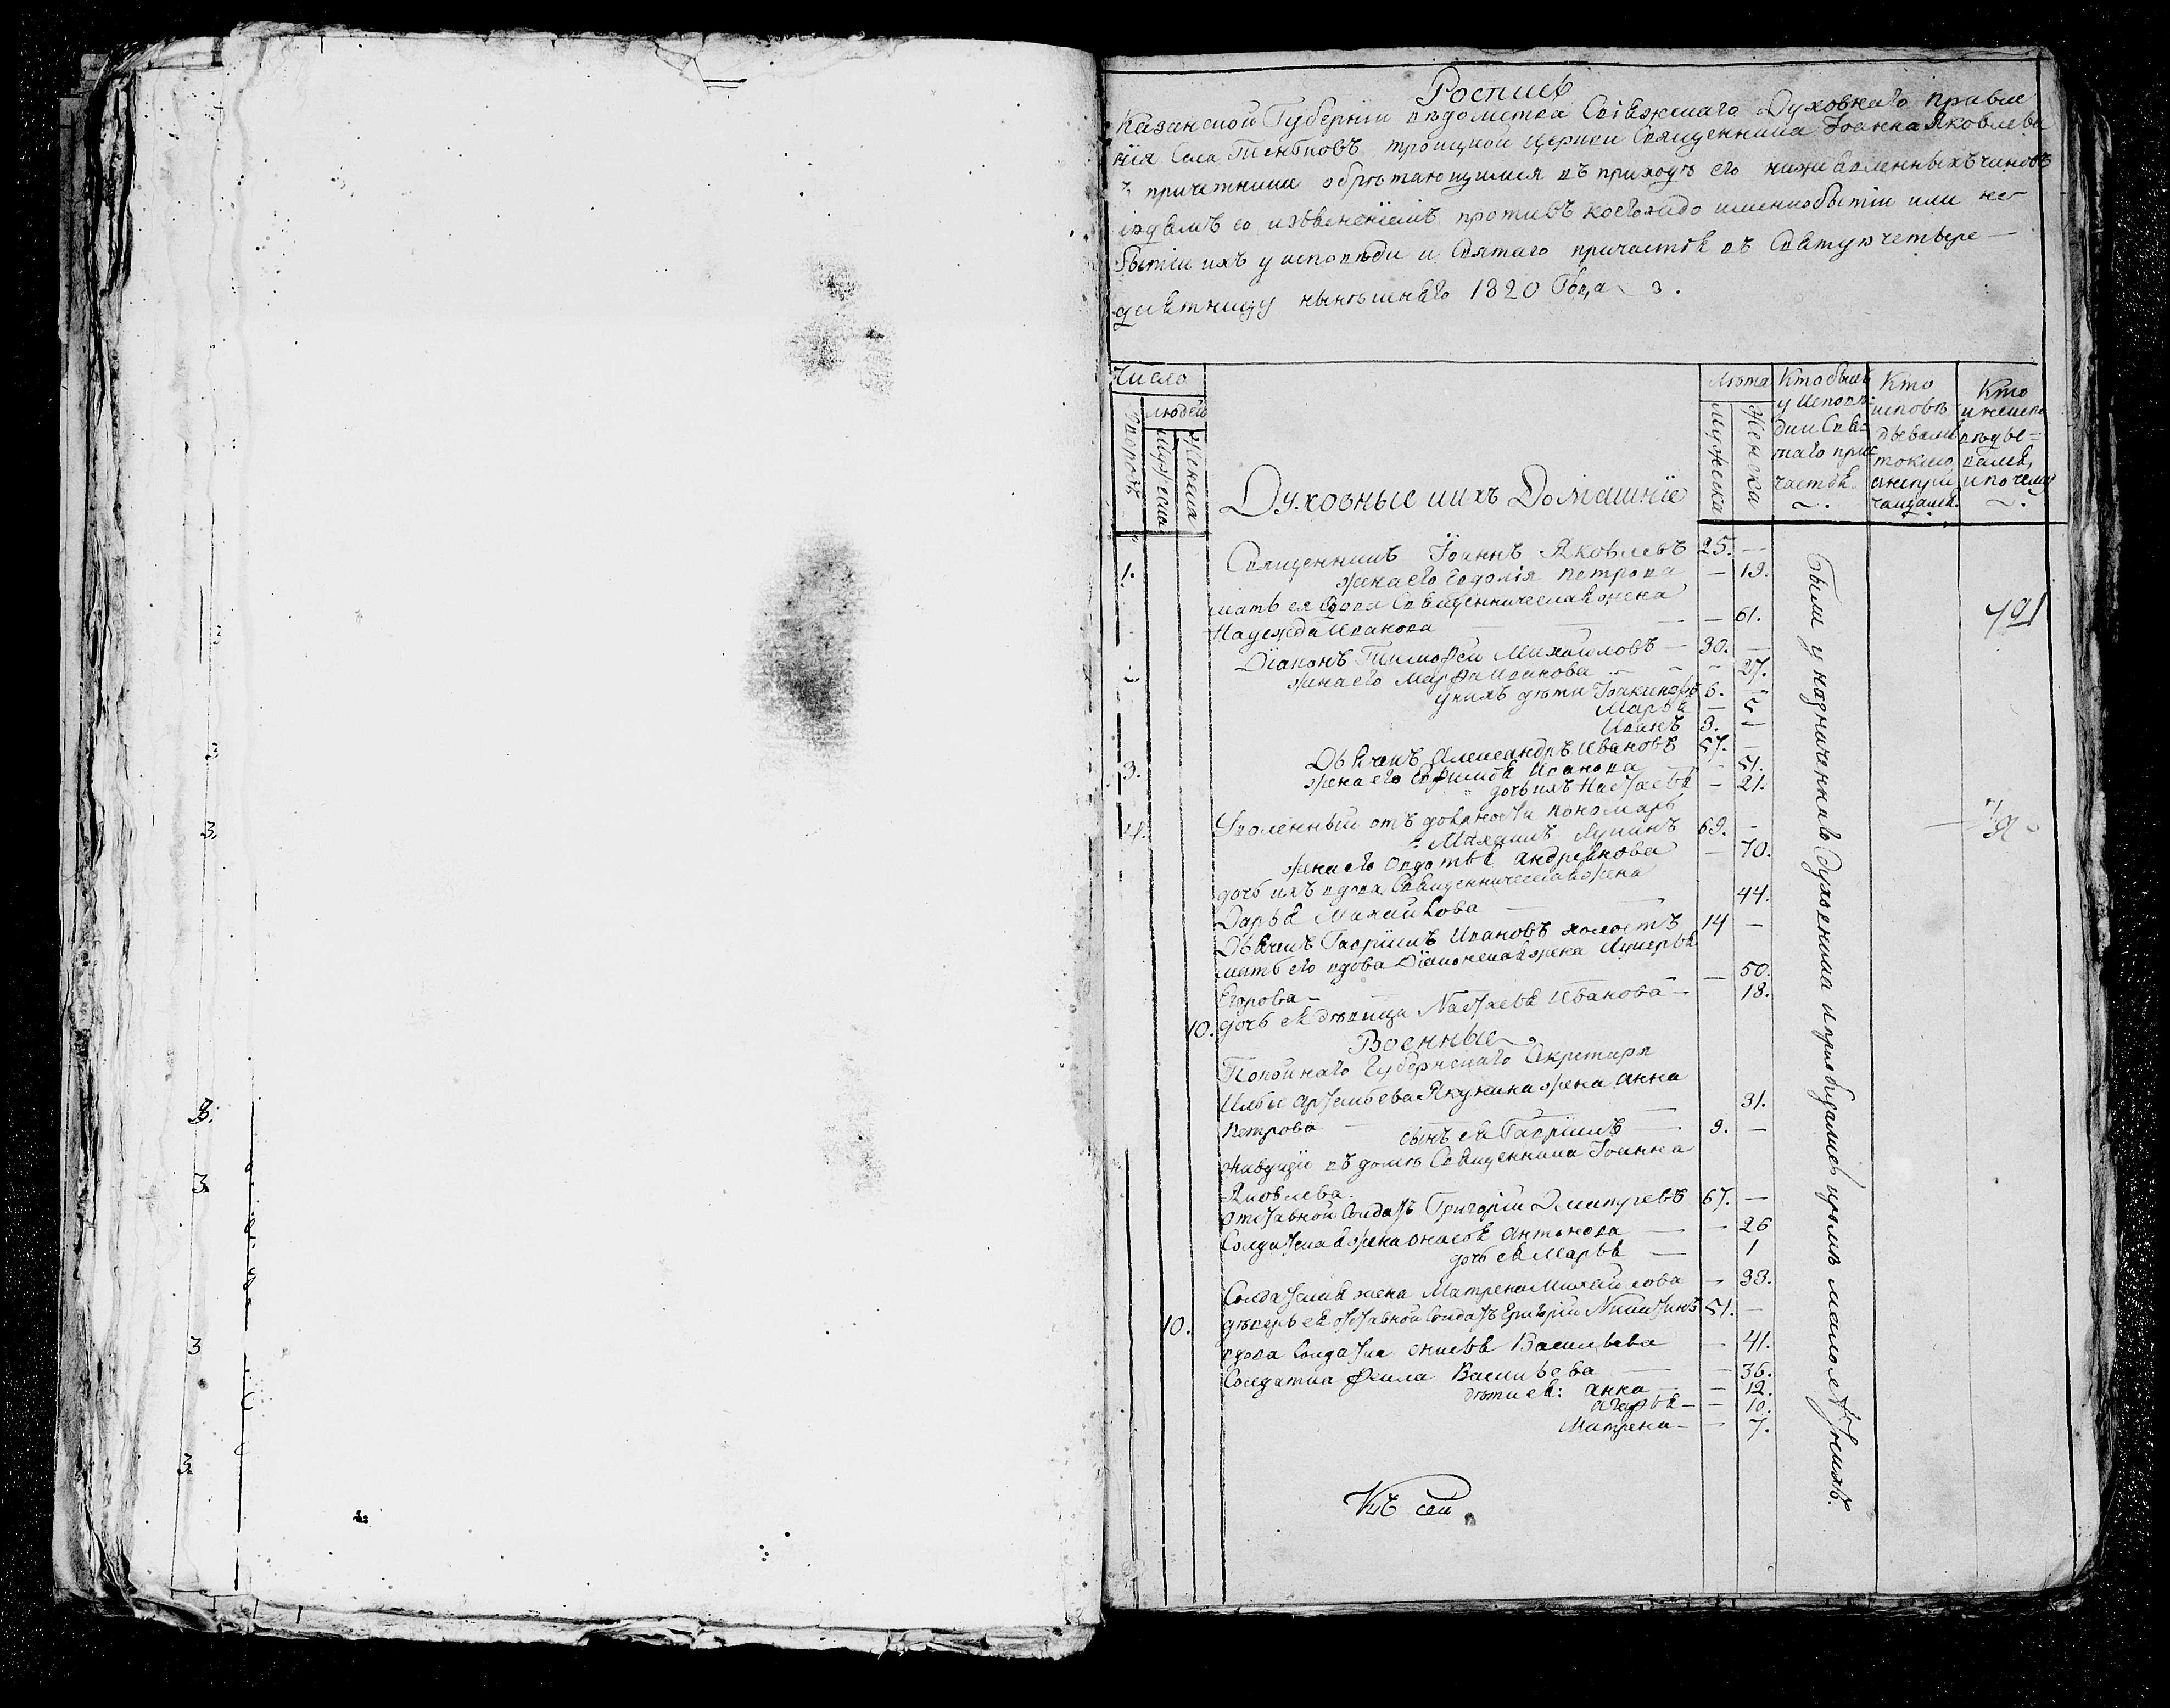 3
3.
3.
3.
3
3.
Роспись
Казанской Губернїи вѣдомства Свїяжскаго Духовнаго правле
нїя Села Тенковъ троицкой церкви Священника Іоанна Яковлева
с причетники обрѣтающимся въ приходѣ его нижеявленныхъ чиновъ
людемъ со изъявленїемъ противъ коегождо имени о бытїи или не
бытїи ихъ у исповѣди и Святаго причастїя въ Святую четыре
десятницу нынѣшняго 1820 Года
Число
людей
дворовъ
Мужеска
Женска
Духовные и ихъ Домашнїе
Лѣта
Мужеска
Женска
Кто былъ
у Исповѣ
ди и Свя=
таго при
частїя
Кто
исповѣ
дывался
токмо
а не при
чащался
Кто
и не испо
вѣдые=
вался,
и почему
1. Священникъ Іоаннъ Яковлевъ 25. —
жена его Евдокїя Петрова — 19.
мать ея вдова Священническая жена
Надежда Иванова — 61.
2 Дїаконъ Тимофей Михайловъ — 30. —
жена его Марфа Иванова — 27.
у нихъ дѣти Іоакинфъ 6. —
Марья — 5
Иванъ 3. —
3. Дьячекъ Александръ Ивановъ 57. —
жена его Евфимья Иванова — 51.
дочь ихъ Настасья — 21.
4. Уволенный отъ должности пономарь
Михаилъ Лукинъ 69. —
жена его Авдотья Андреянова — 70.
дочь ихъ вдова Священническая жена
Дарья Михайлова 44.
Дьячекъ Гаврїилъ Ивановъ холостъ 14 —
мать его вдова Дїаконская жена Лукерья
Егорова — — 50.
10. дочь ея дѣвица Настасья Иванова — 18.
Военные
Покойнаго Губернскаго Секретаря
Ильи Артемьева Якунина жена Анна
Петрова — 31.
сынъ ея Гаврїилъ 9. —
живущїи въ домѣ Священника Іоанна
Яковлева.
Отставной Солдатъ Григорїй Дмитрїевъ 67. —
Солдатская жена Анисья Антонова — 26
дочь ея Марья — 1
Солдатская жена Матрена Михайлова — 33.
10. деверь ея отставной Солдатъ Григорїй Никитинъ 51. —
вдова Солдатка Анисья Васильева — 41.
Солдатка Фекла Васильева — 36.
дѣти ея: Анна — 12.
Агафья — — 10.
Матрена — — 7.
Были у назначеннаго Духовника и прїобщались кромѣ малолѣтнихъ.
491